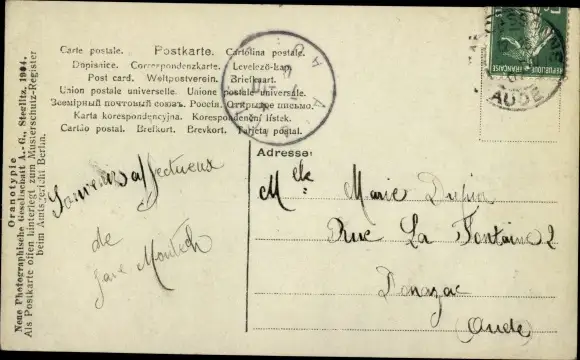 Oranotypie
Neue Photographische Gesellschaft A.-G., Steglitz. 1904.
Als Postkarte offen hinterlegt zum Musterschutz-Register
beim Amtsgericht Berlin.
Carte postale. Postkarte. Cartolina postale.
Dopisnice. Correspondenzkarte. Levelező-lap.
Post card. Weltpostverein. Briefkaart.
Union postale universelle. Unione postale universale.
Всемірный почтовый союзъ. Россія. Открытое письмо.
Karta korespondencyjna. Korespondenční lístek.
Cartão postal. Brefkort. Brevkort. Tarjeta postal.
REPUBLIQUE FRANÇAISE
AUDE
Souvenirs affectueux
de
Adresse:
Melle Marie Dupin
Rue La Fontaine 2
Donazac
(Aude)